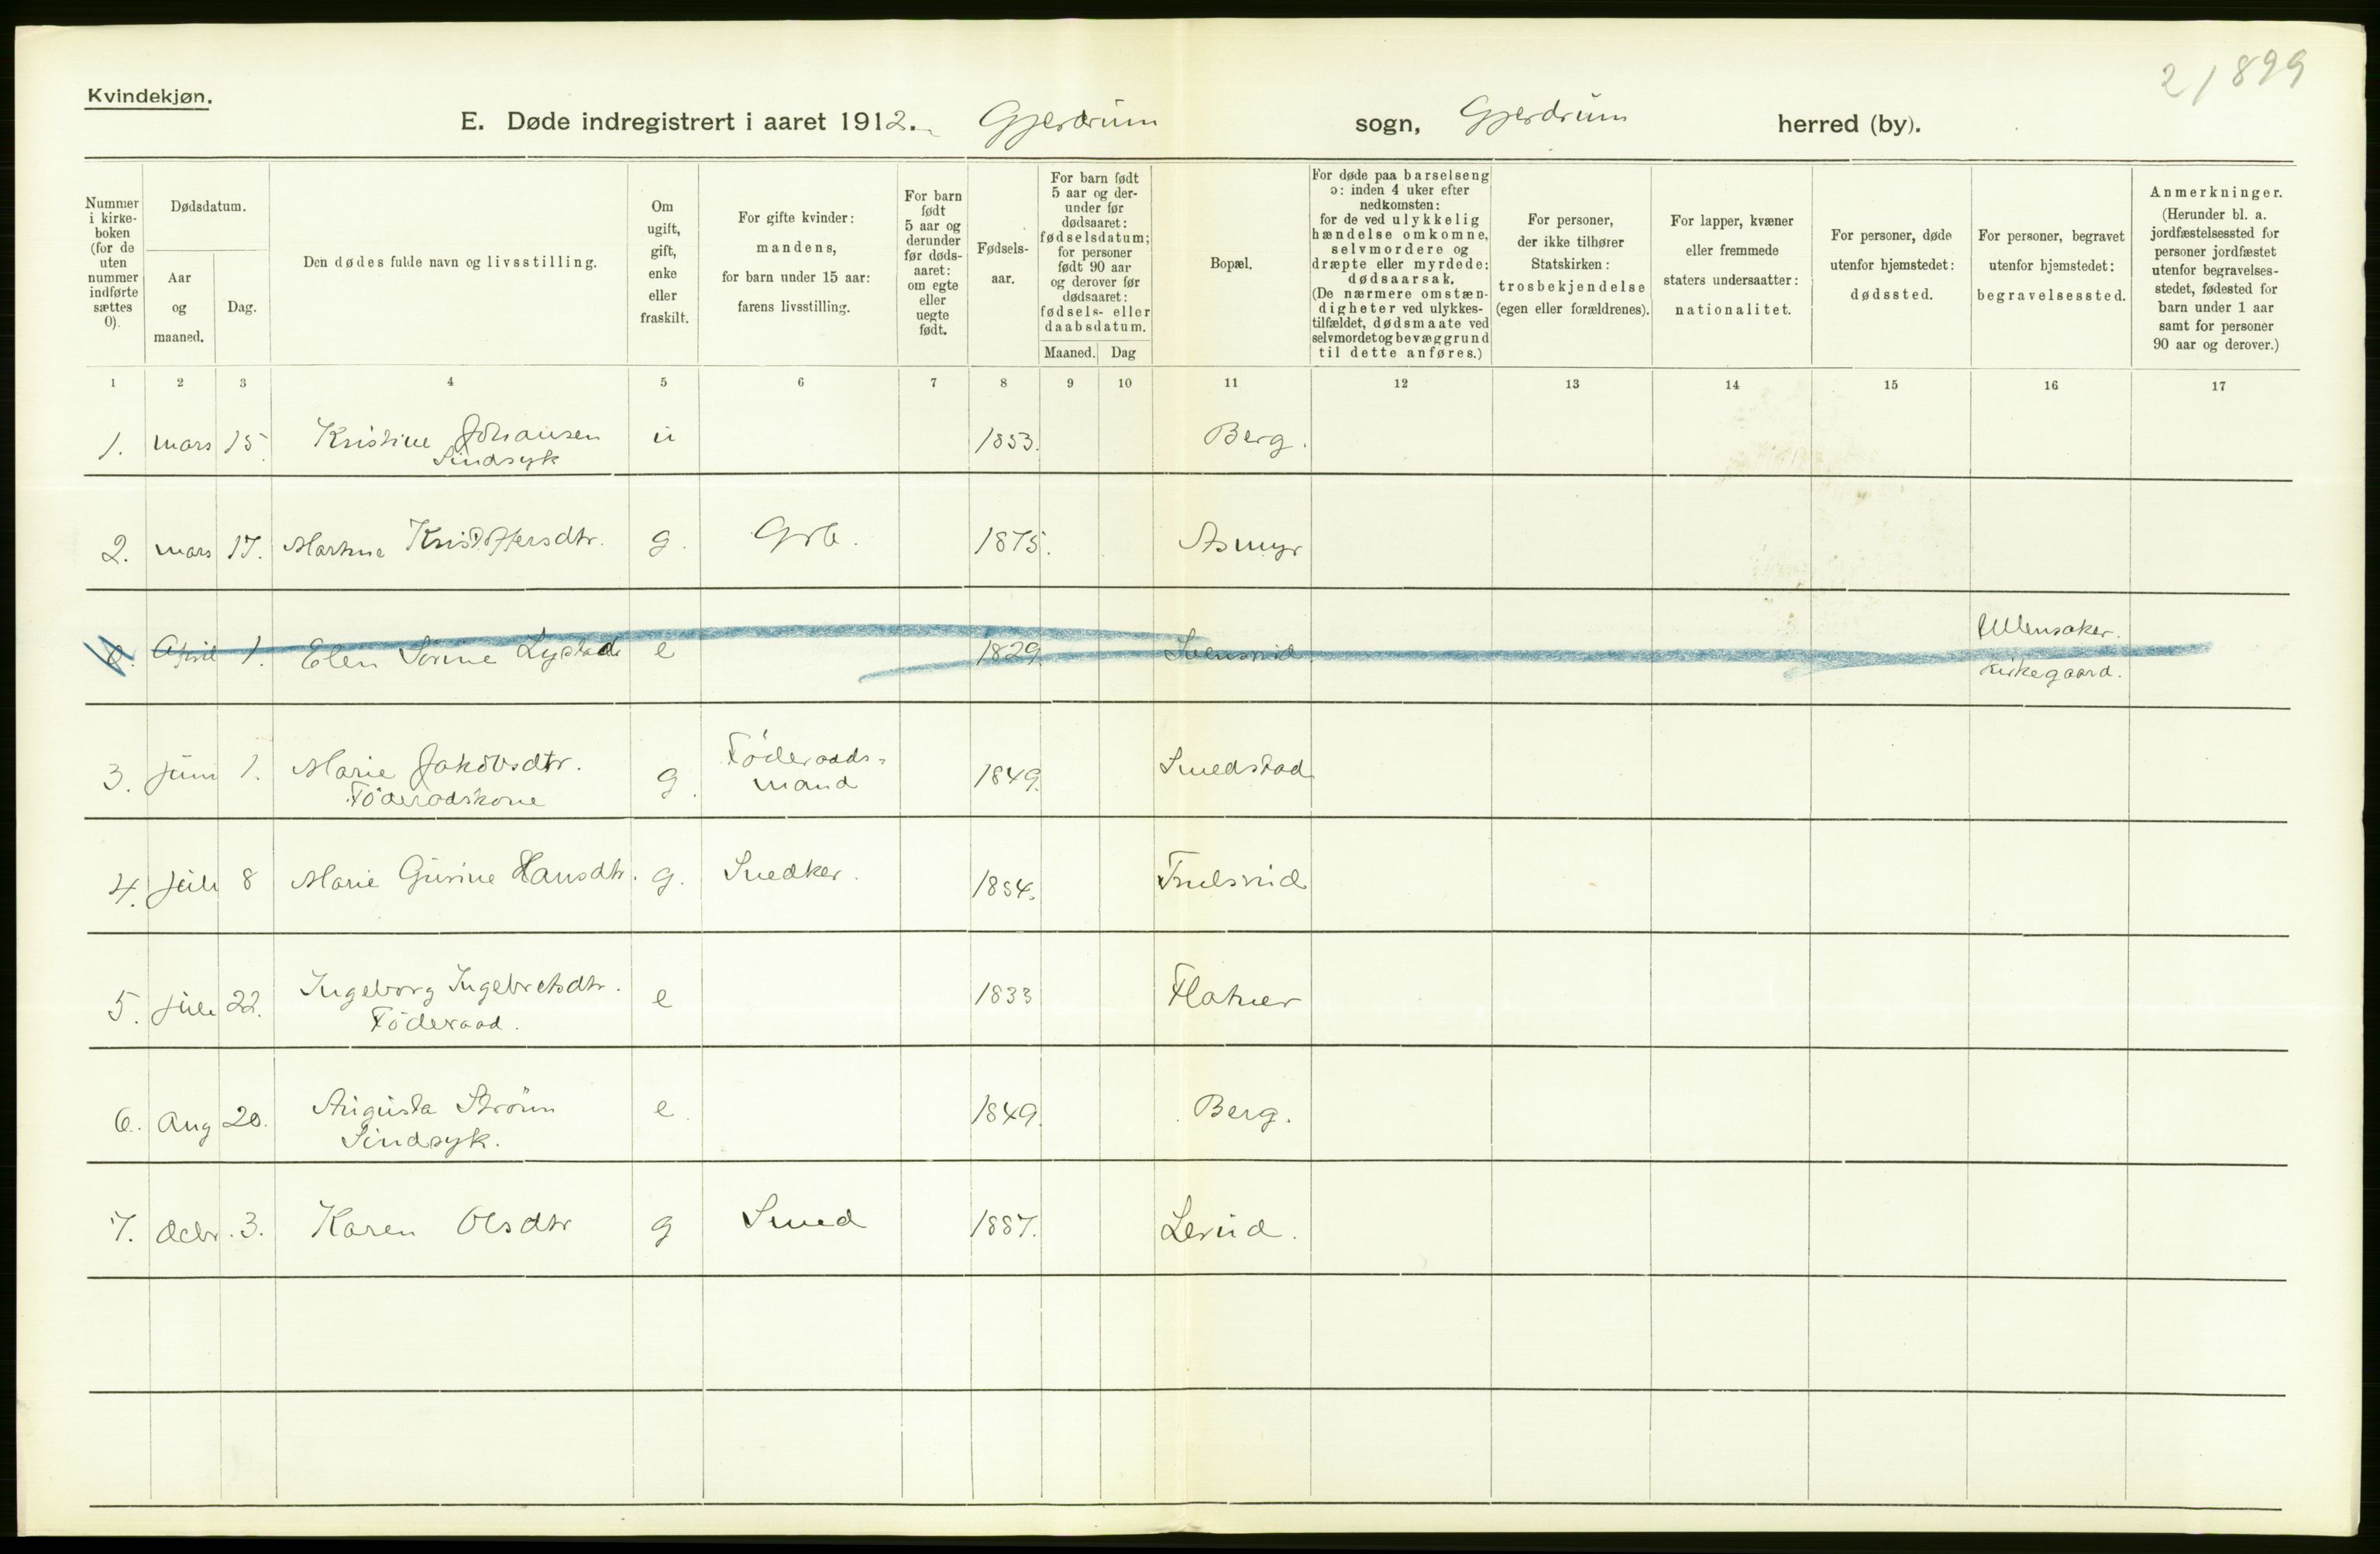 Kvindekjøn.
2/899
E. Døde indregistrert i aaret 1912. Gjerdrum sogn, Gjerdrum herred (by).
Nummer i kirke-boken (for de uten nummer indførte sættes 0).
Dødsdatum.
Aar og maaned.
Dag.
Den dødes fulde navn og livsstilling.
Om ugift, gift, enke eller fraskilt.
For gifte kvinder: mandens, for barn under 15 aar: farens livsstilling.
For barn født 5 aar og derunder før døds-aaret: om egte eller uegte født.
Fødsels-aar.
For barn født 5 aar og der-under før dødsaaret: fødselsdatum; for personer født 90 aar og derover før dødsaaret: fødsels- eller daabsdatum.
Maaned. Dag
Bopæl.
For døde paa barselseng ɔ: inden 4 uker efter nedkomsten: for de ved ulykkelig hændelse omkomne, selvmordere og dræpte eller myrdede: dødsaarsak. (De nærmere omstæn-digheter ved ulykkes-tilfældet, dødsmaate ved selvmordet og bevæggrund til dette anføres.)
For personer, der ikke tilhører Statskirken: trosbekjendelse (egen eller forældrenes).
For lapper, kvæner eller fremmede staters undersaatter: nationalitet.
For personer, døde utenfor hjemstedet: dødssted.
For personer, begravet utenfor hjemstedet: begravelsessted.
Anmerkninger. (Herunder bl. a. jordfæstelsessted for personer jordfæstet utenfor begravelses-stedet, fødested for barn under 1 aar samt for personer 90 aar og derover.)
1 2 3 4 5 6 7 8 9 10 11 12 13 14 15 16 17
1. mars 15. Kristine Johansen u 1853. Berg.
Sindsyk
2. mars 17. Martine Kristoffersdtr. g. Grb. 1875. Asmyr
0. April 1. Elen Sorine Lystad e 1829. Svensrud. Ullensaker.
Kirkegaard.
3. juni 1. Marie Jakobsdtr. g. Föderaads-
mand 1849. Smedstad
Föderadskone
4. juli 8 Marie Gurine Hansdtr. g. Snedker. 1854. Trulsrud
5. juli 22. Ingeborg Ingebretsdtr. e 1833 Flatner
Föderaad.
6. Aug 20. Augusta Ström e. 1849. Berg.
Sindsyk.
7. Octbr. 3. Karen Olsdtr g Smed 1887. Lerud.